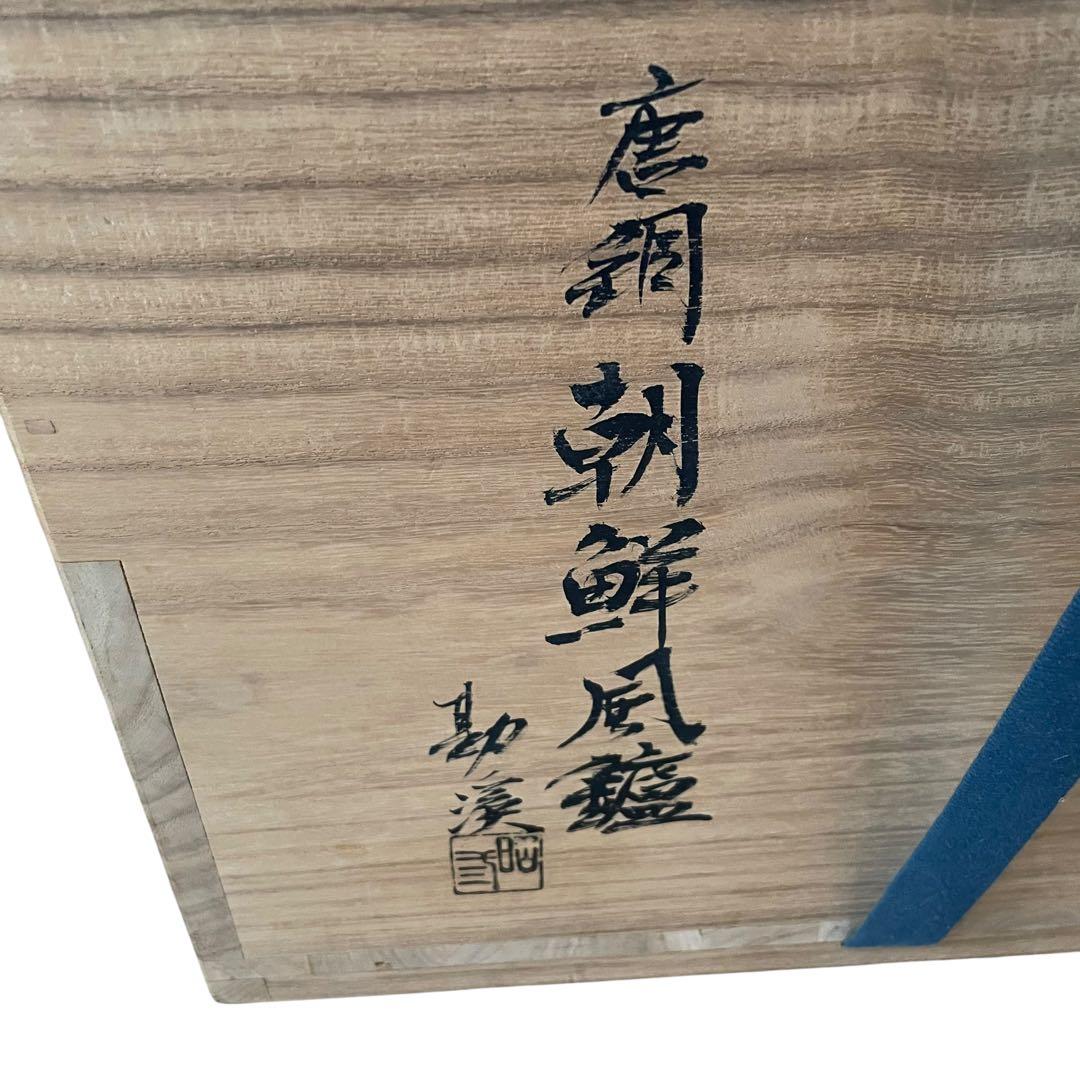 唐銅朝鮮風鑪
勘溪